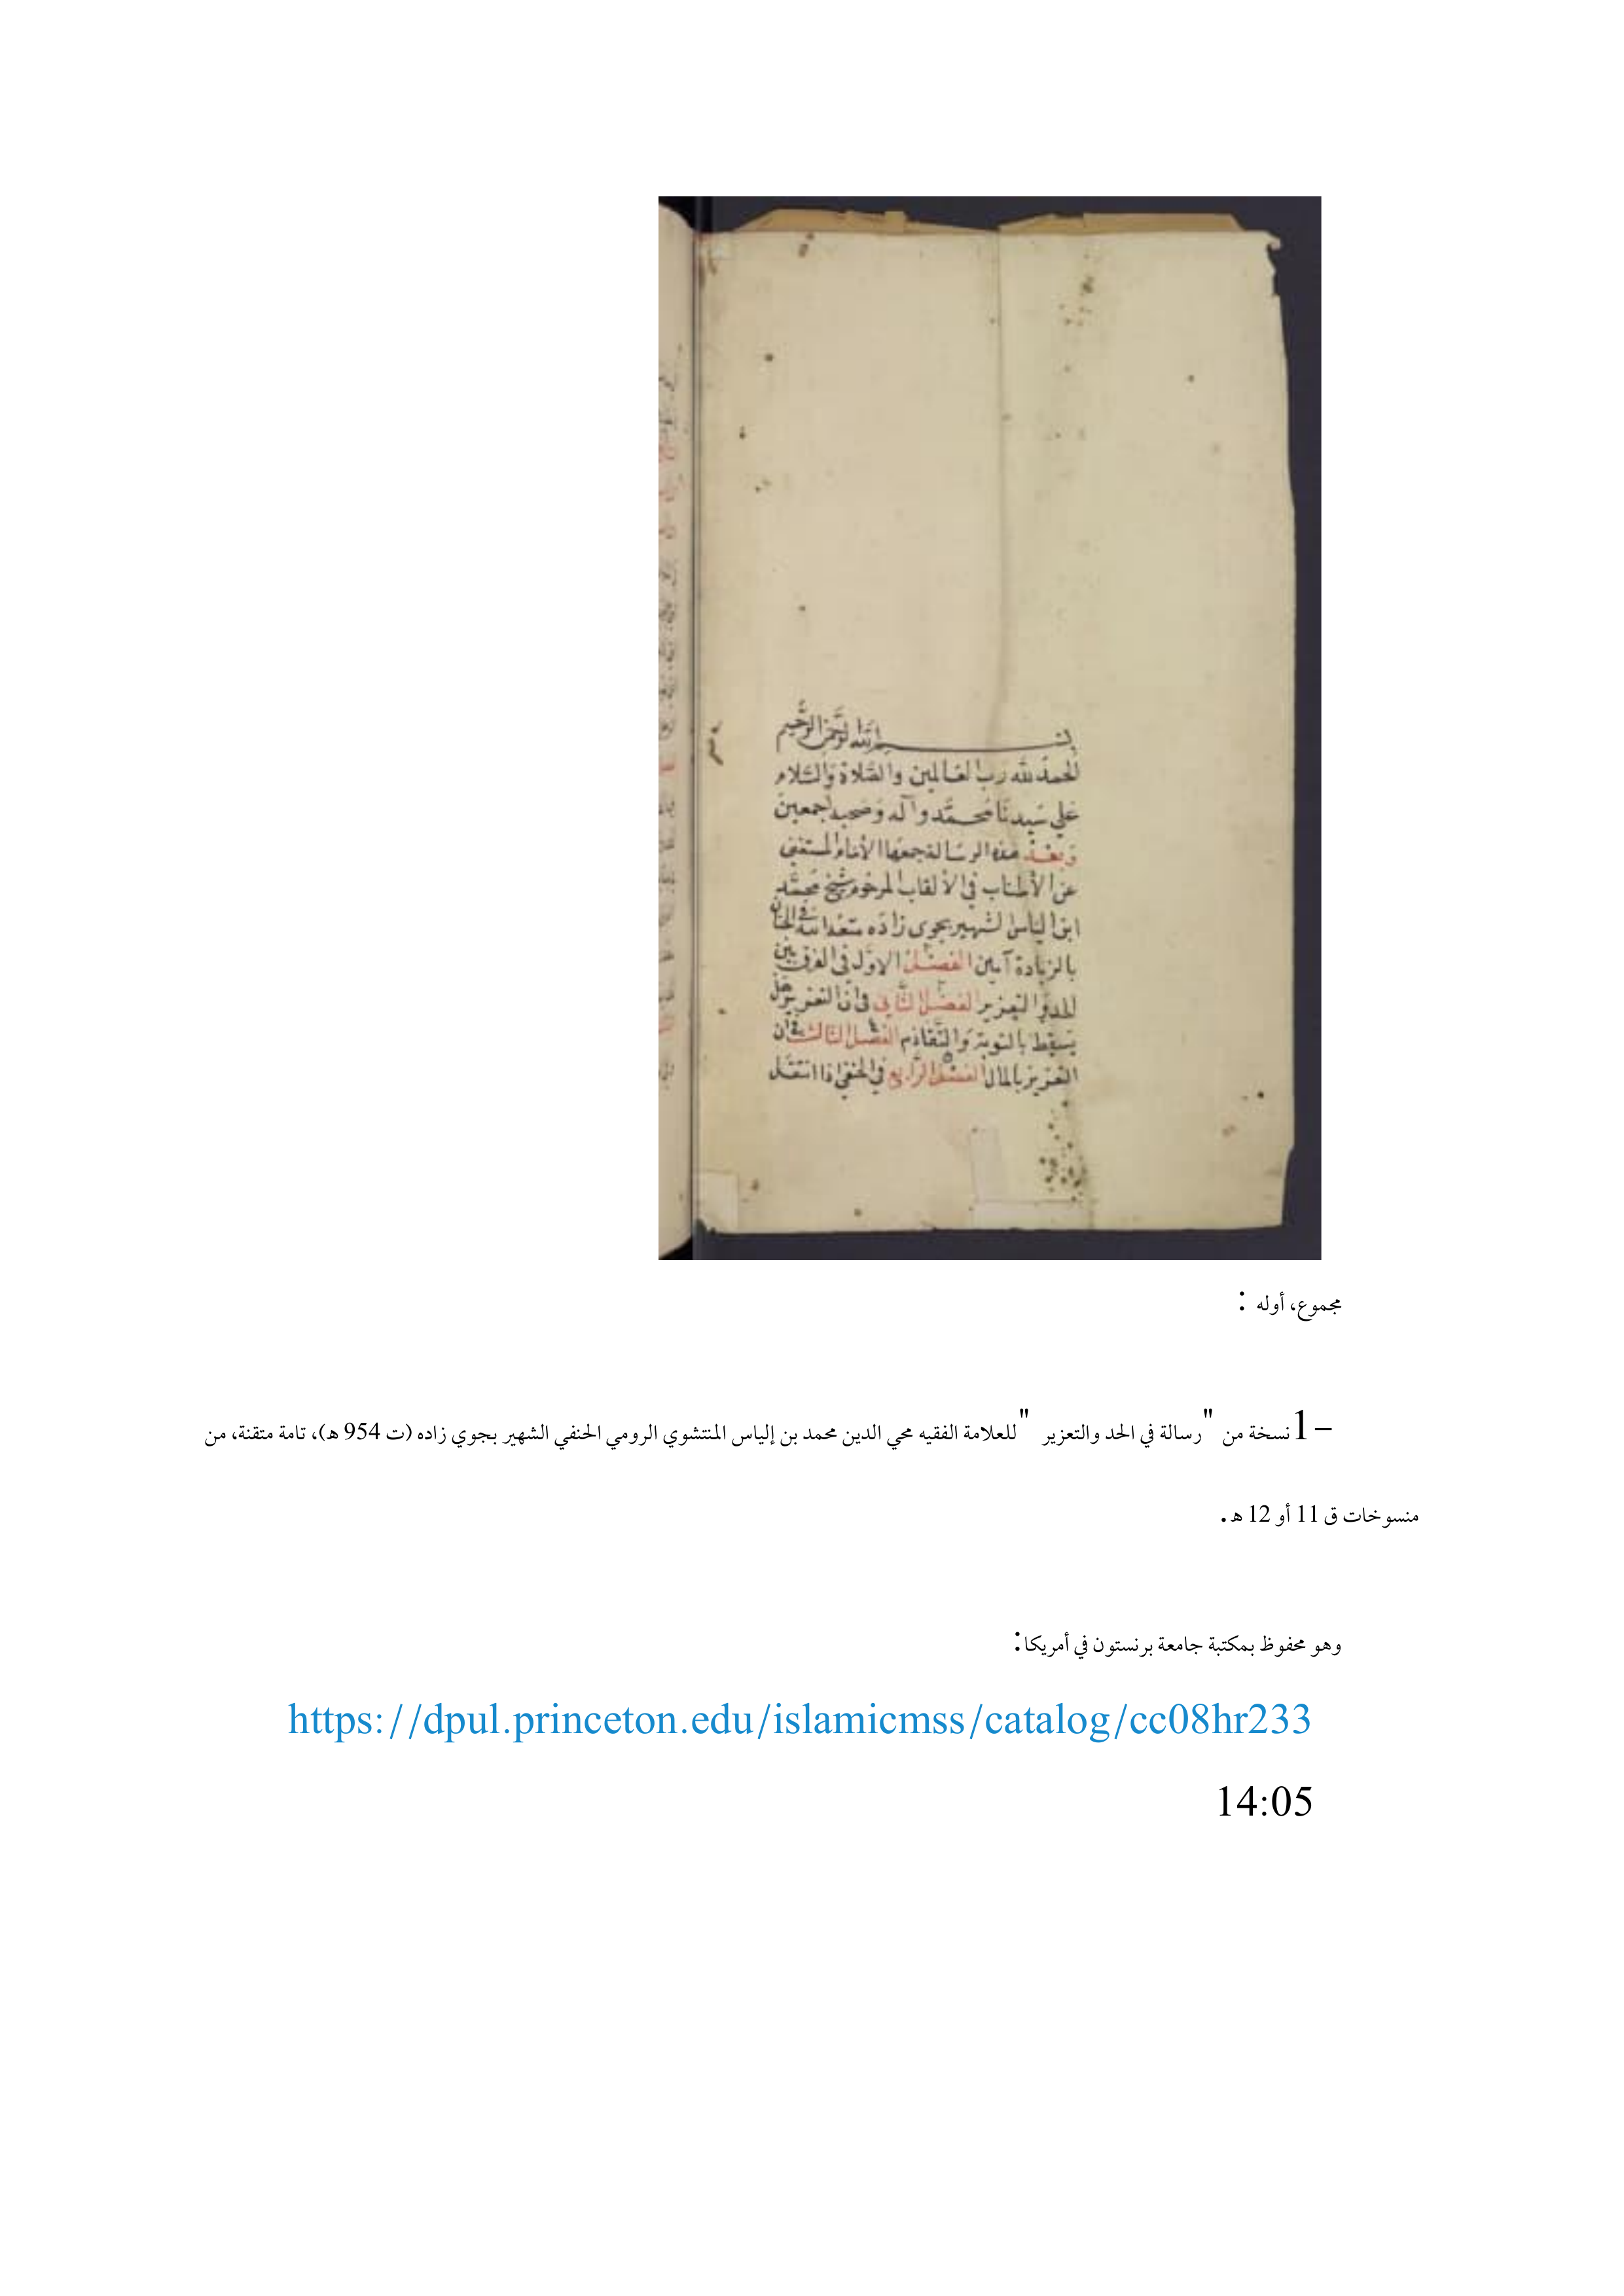 بسم الله الرحمن الرحيم
الحمد لله رب العالمين والصلاة والسلام
علي سيدنا محمد وآله وصحبه اجمعين
وبعد هذه الرسالة جمعها الامام المستغني
عن الأطناب في الألقاب المرحوم شيخ محمد
ابن الياس الشهير بجوى زاده الله في الجنان
بالزيادة آمين الفصل الاول في الفرق بين
الحد والتعزير الفصل الثاني في ان التعزير هل
يسقط بالتوبة والتقادم الفصل الثالث في ان
التعزير بالمال الفصل الرابع في الحنفي اذا انتقل
مجموع، أوله :
1– نسخة من "رسالة في الحد والتعزير " للعلامة الفقيه محي الدين محمد بن إلياس المنتشوي الرومي الحنفي الشهير بجوي زاده (ت 954 هـ)، تامة متقنة، من
منسوخات ق 11 أو 12 هـ.
وهو محفوظ بمكتبة جامعة برنستون في أمريكا:
https://dpul.princeton.edu/islamicmss/catalog/cc08hr233
14:05